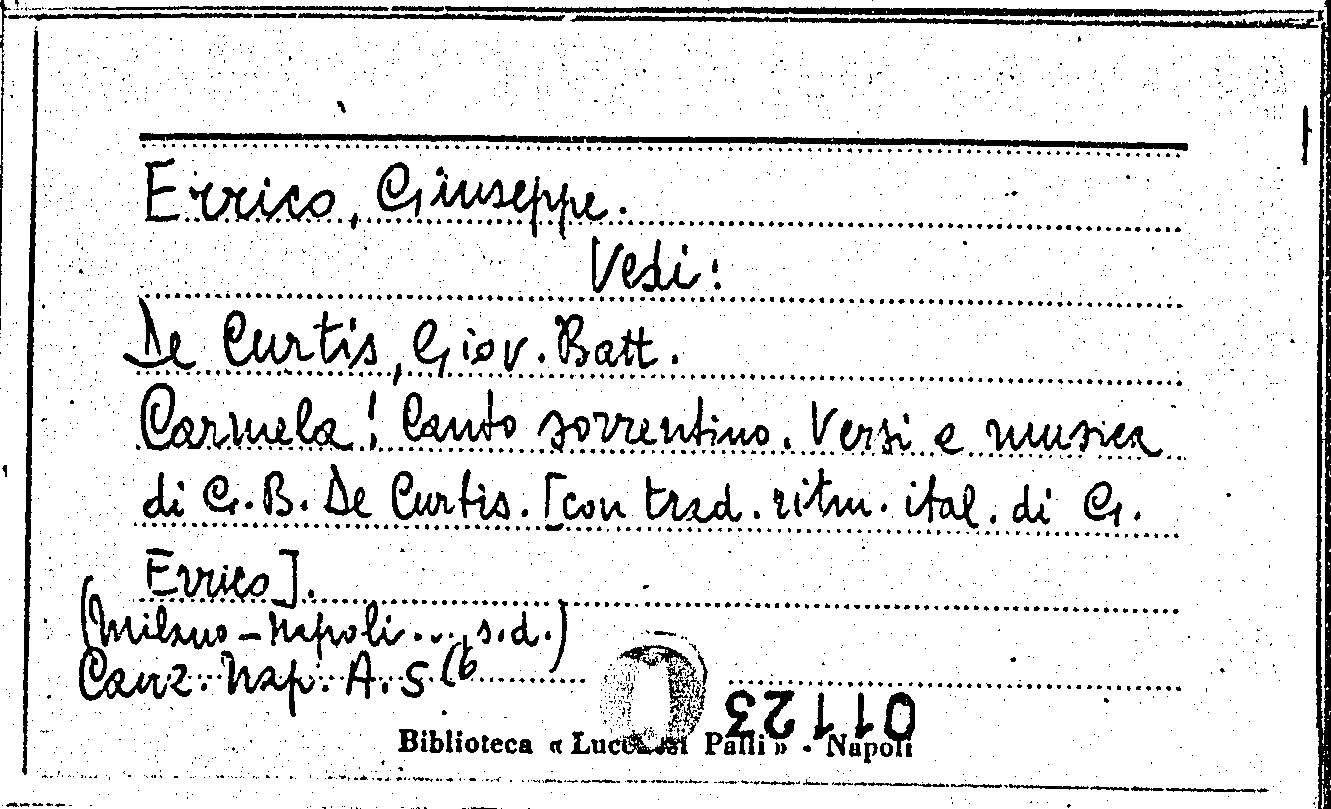 Errico, Giuseppe.
Vedi:
De Curtis, Giov. Batt.
Carmela! Canto sorrentino. Versi e musica
di G. B. De Curtis. [con trad. ritm. ital. di G.
Errico].
(Milano - Napoli ..., s.d.)
Canz. Nap. A. 5 (6
01123
Biblioteca « Lucchesi Palli » - Napoli